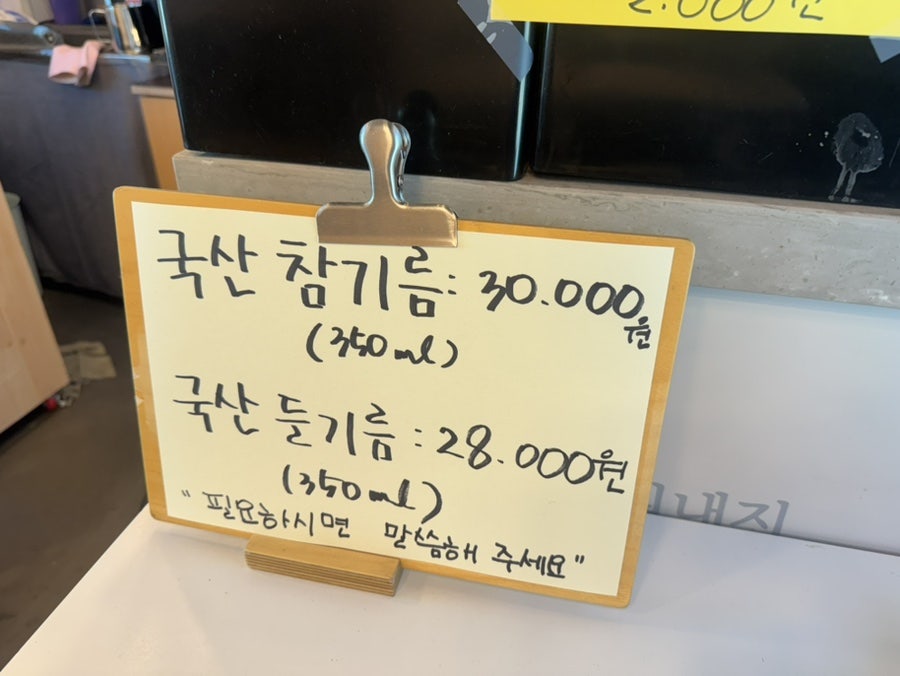 2.000원
국산 참기름: 30.000원
(350ml)
국산 들기름: 28.000원
(350ml)
"필요하시면 말씀해 주세요"